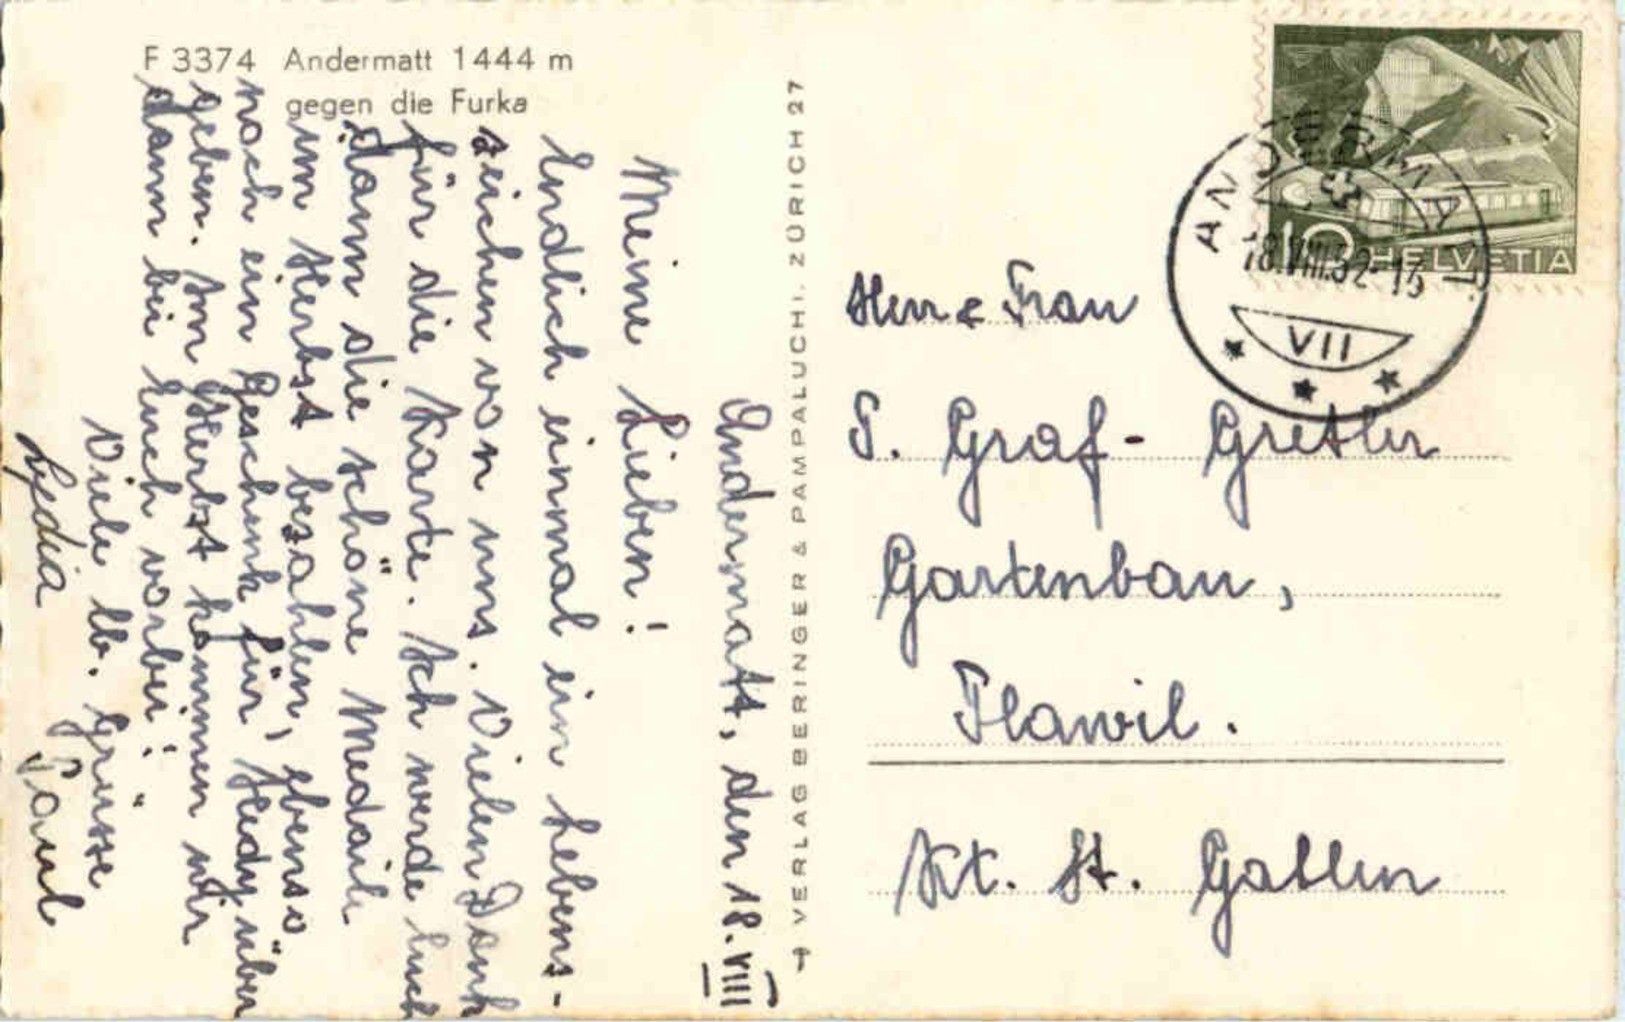 F 3374 Andermatt 1444 m
gegen die Furka
Andermatt, den 18. VIII
Meine Lieben!
Endlich einmal ein Lebens-
zeichen von uns. Vielen Dank
für die Karte. Ich werde Euch
dann die schöne Medaile
im Herbst bezahlen, ebenso
noch ein Geschenk für Hedy über
geben. Im Herbst kommen wir
dann bei Euch vorbei!
Viele lb. Grüsse
Lydia Paul
VERLAG BERINGER & PAMPALUCHI. ZÜRICH 27
10 HELVETIA
ANDERMATT
18.VIII.52-13
VII
Herr & Frau
P. Graf - Gretler
Gartenbau,
Flawil.
Kt. St. Gallen